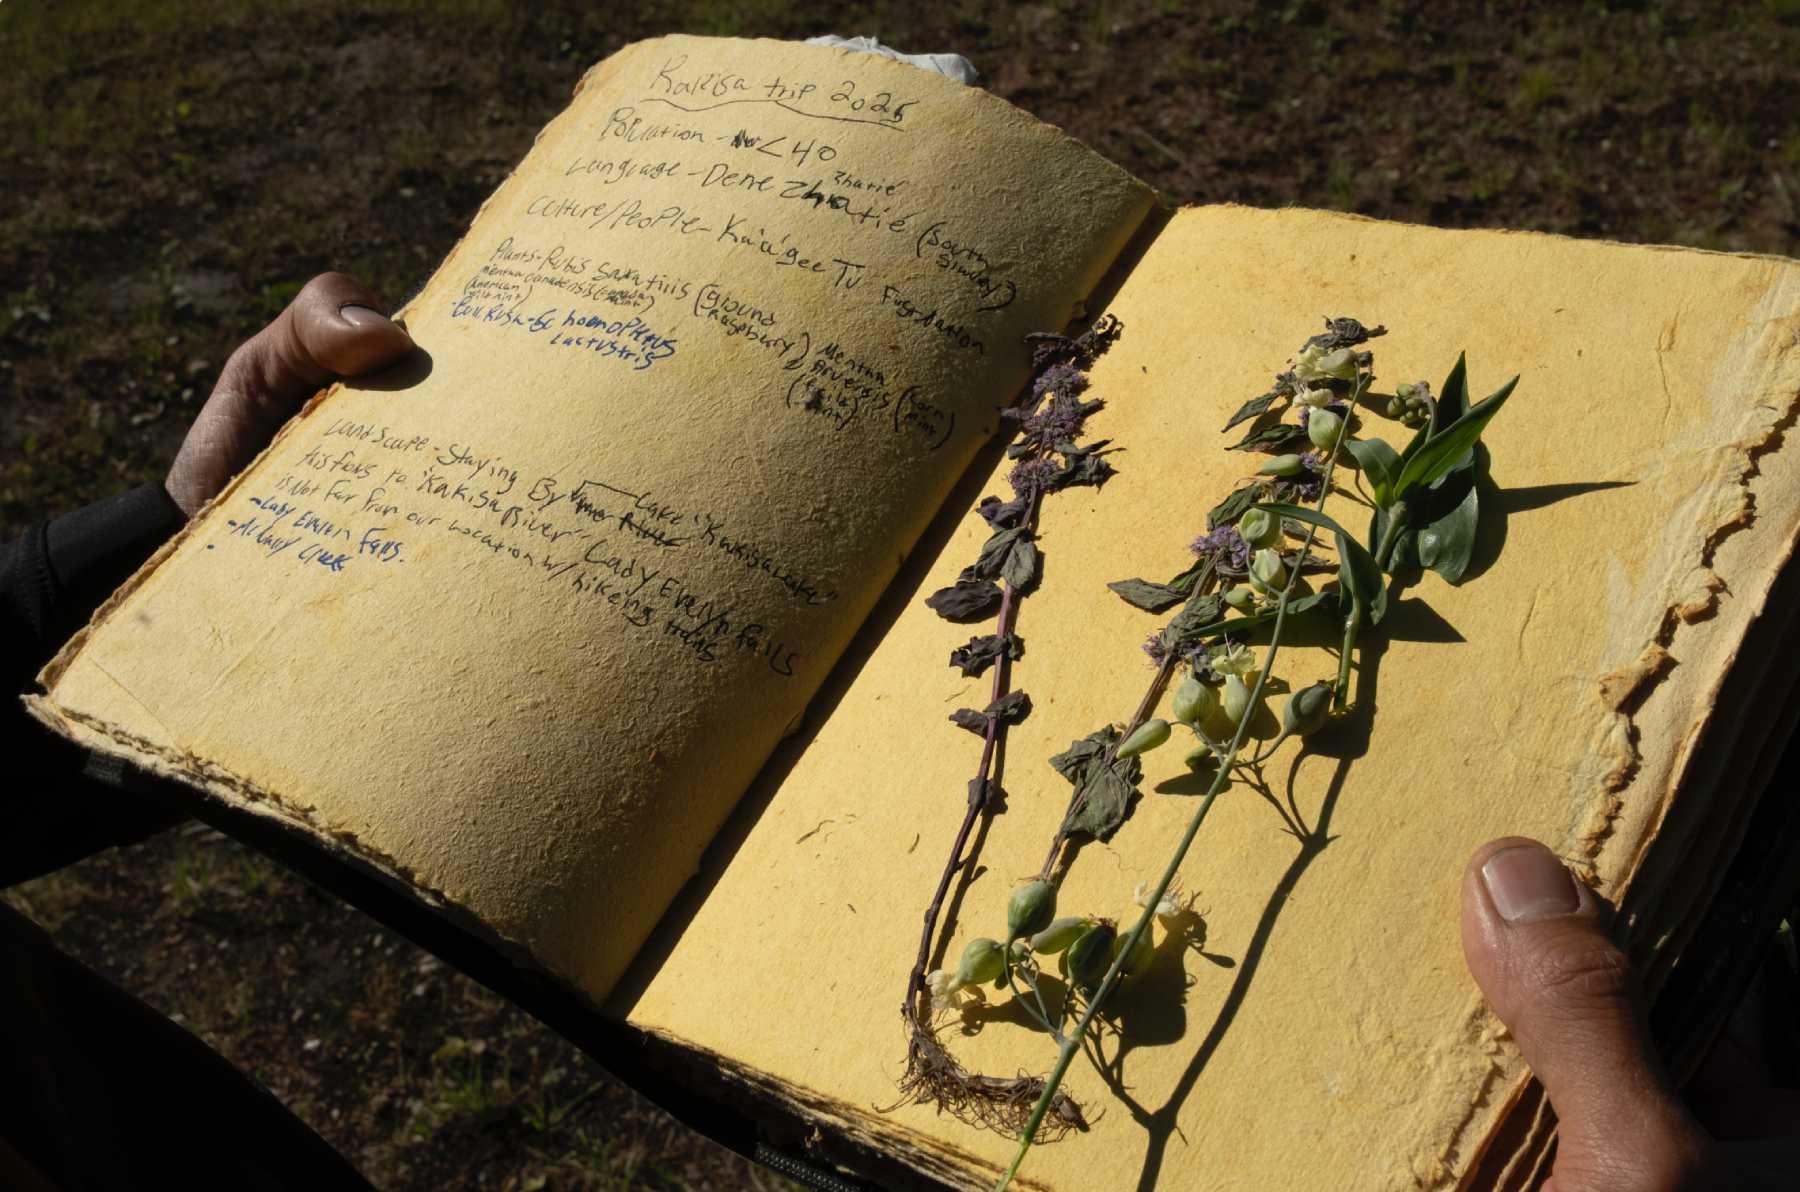 Kakisa trip 2025
Population - < 40
Language - Dene Zhatié Zhatié (South Slavey)
Culture/People - Ka'a'gee Tu First Nation
Plants - Rubis Saxatilis (ground raspbury) Mentha Arvensis (corn mint) (feild mint)
mentha canadensis (canada mint) (American wild mint)
- Bull Rush - Schoenoplectus Lacustris
Landscape - Staying By Lake "Kakisa Lake"
this flows to "Kakisa River" Lady Evelyn Falls
is Not Far From our Location w/ hikeing trails.
- Lady Evelyn Falls.
- McNally Creek